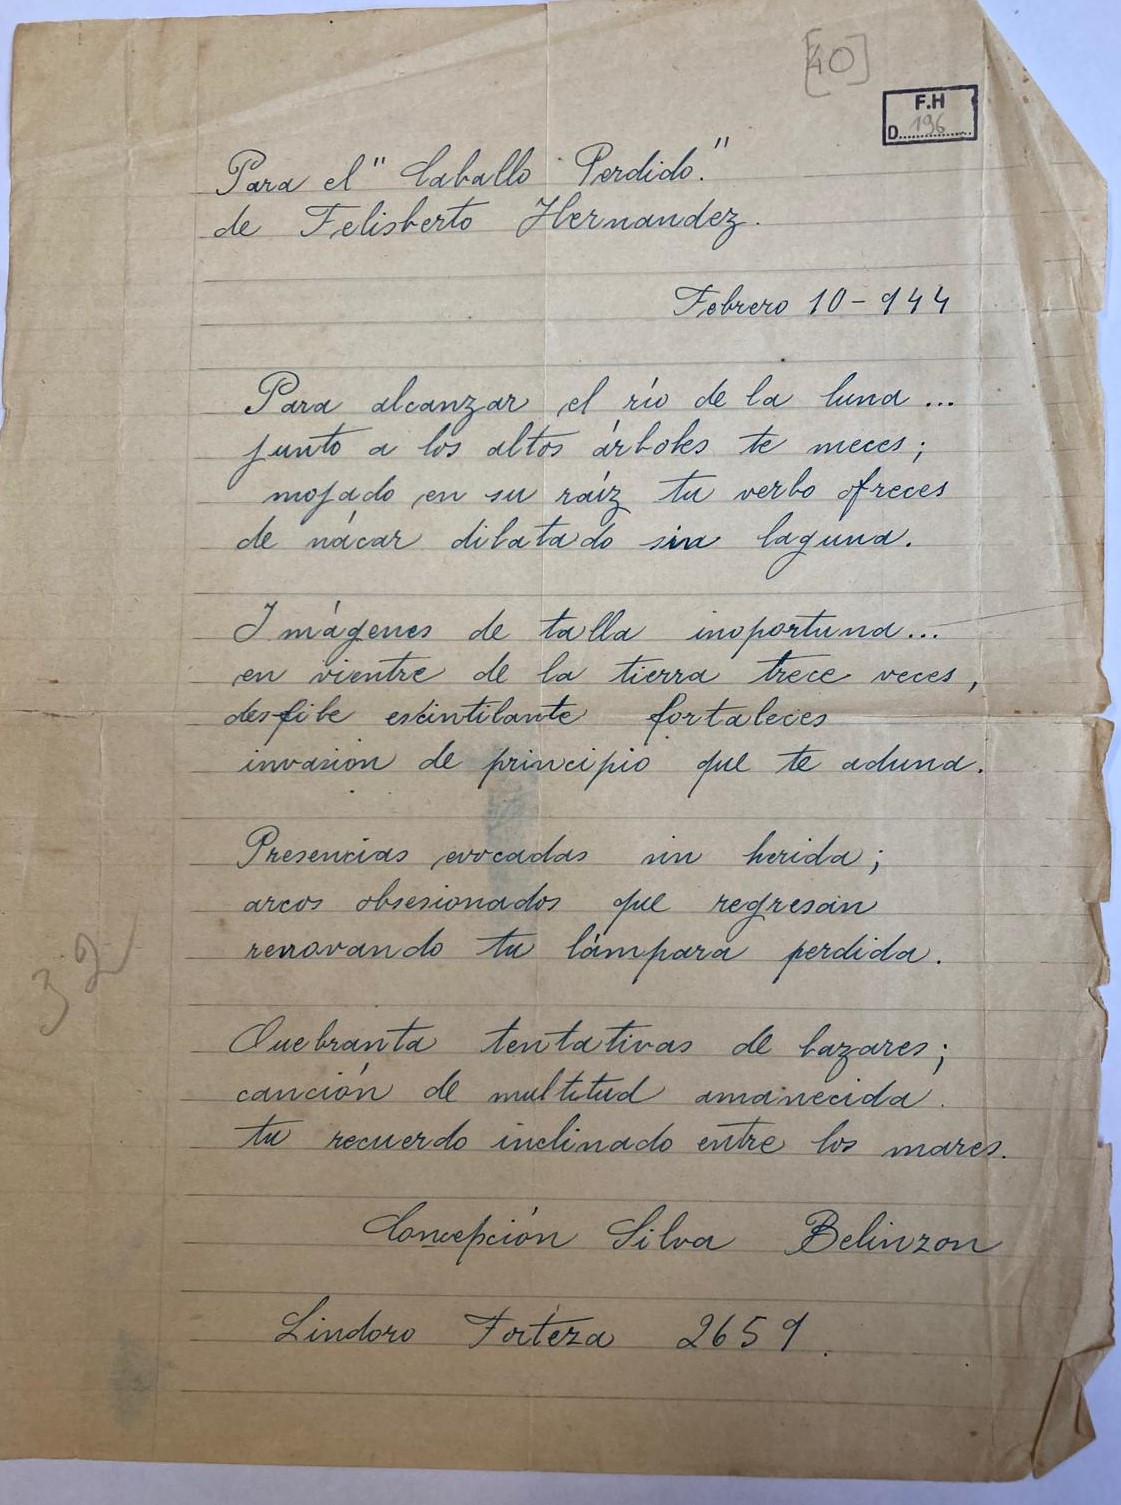 [40]
F.H
D. 196
Para el "Caballo Perdido."
de Felisberto Hernandez.
Febrero 10-944
Para alcanzar el río de la luna...
junto a los altos árboles te meces;
mojado en su raíz tu verbo ofreces
de nácar dilatado sin laguna.
Imágenes de talla inoportuna...
en vientre de la tierra trece veces,
desfile escintilante fortaleces
invasión de principio que te aduna.
Presencias evocadas sin herida;
arcos obsesionados que regresan
renovando tu lámpara perdida.
32
Quebranta tentativas de bazares;
canción de multitud amanecida.
tu recuerdo inclinado entre los mares.
Concepción Silva Belinzon
Lindoro Forteza 2659.